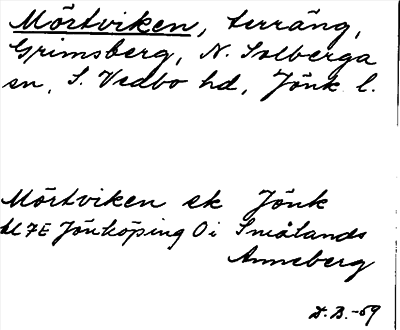 Mörtviken, terräng,
Grimsberg, N. Solberga
sn, S. Vedbo hd, Jönk. l.
Mörtviken ek Jönk
bl 7E Jönköping O i Smålands
Anneberg
D.B.-69